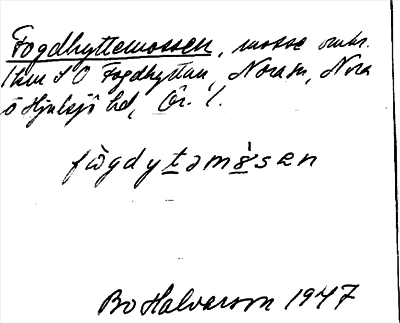 Fogdhyttemossen, mosse omkr.
1 km S O Fogdhyttan, Nora sn, Nora
o Hjulsjö hd, Ör. l.
fògdytəmòsen
Bo Halvarson 1947